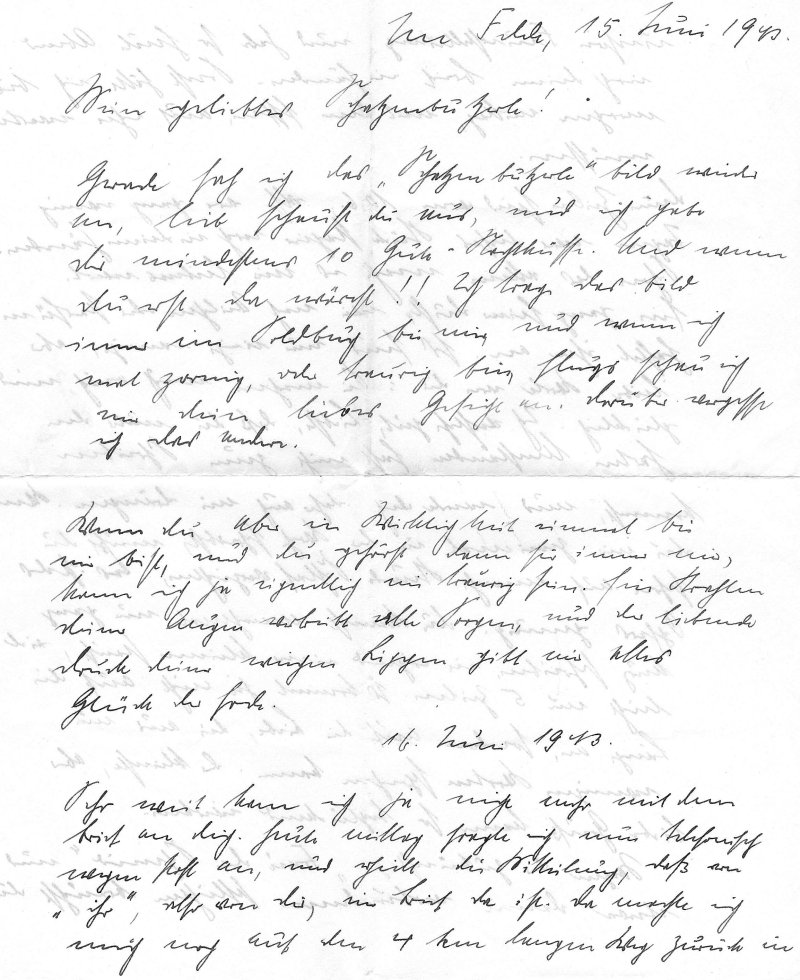 Im Felde, 15. Juni 1943.
Mein geliebtes Schatzenbutzerle!
Gerade sah ich das „Schatzenbutzerle“ bild wieder
an, lieb schaust du aus, und ich gebe
dir mindestens 10 Gute-Nachtküsse. Und wenn
du erst da wärest!! Ich trage das bild
immer im Soldbuch bei mir und wenn ich
mal zornig, oder traurig bin, flugs schau ich
mir dein liebes Gesicht an. darüber vergesse
ich das andere.
Wenn du aber in Wirklichkeit einmal bei
mir bist, und du gehörst dann für immer mir,
kann ich ja eigentlich nie traurig sein. Ein Strahlen
deiner Augen vertreibt alle Sorgen, und der liebende
druck deiner weichen Lippen gibt mir alles
Glück der Erde.
16. Juni 1943.
Sehr weit kam ich ja nicht mehr mit dem
brief an dich. Heute mittag fragte ich nun telefonisch
wegen Post an, und erhielt die Mitteilung, daß von
„ihr“, also von dir, ein brief da ist. da machte ich
mich noch auf den 4 km langen Weg zurück in